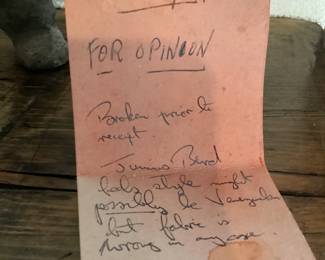 FOR OPINION
Broken prior to
receipt.
Junius Bird
style might
possibly be Venezuelan
but fabric is
wrong in any case.